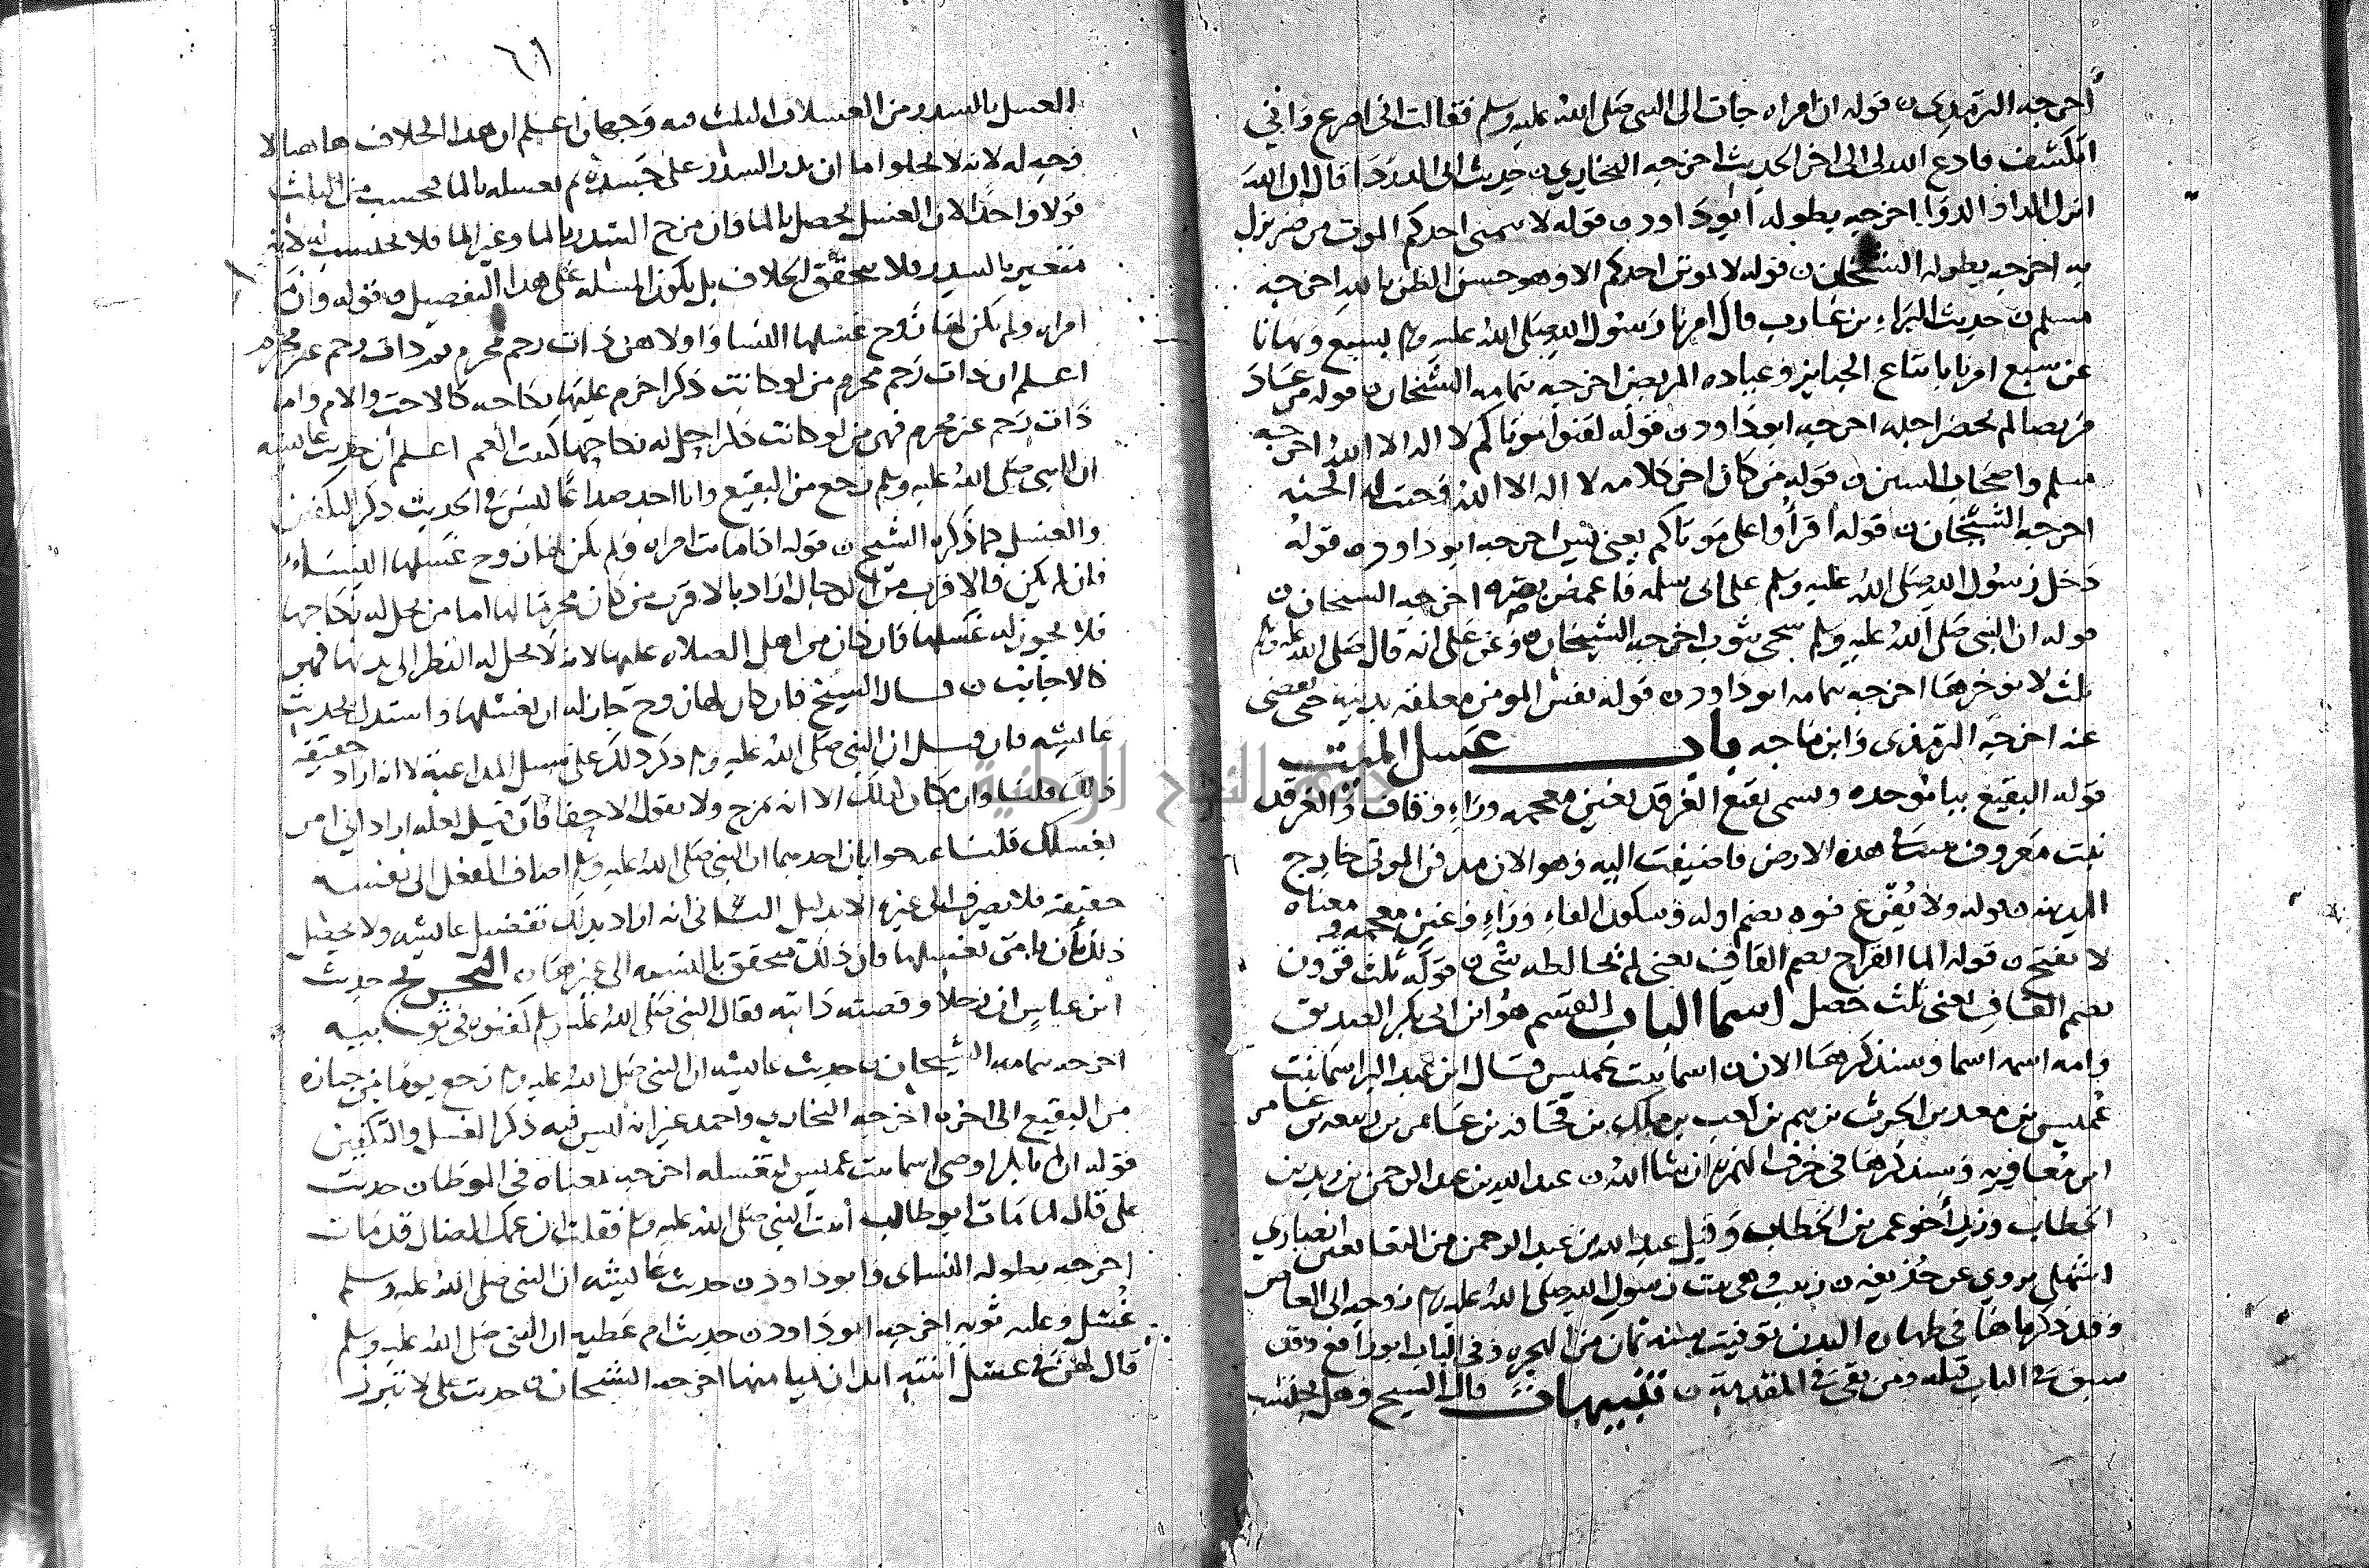 اخرجه الترمذي ن قوله ان امراه جات الى النبي صلى الله عليه وسلم فقالت اني اصرع واني
اتكشف فادع الله لي الى اخر الحديث اخرجه البخاري ن حديث ابي الدردا قال ان الله
انزل الدا والدوا اخرجه بطوله ابوداود ن قوله لا يتمنى احدكم الموت من ضر نزل
به اخرجه بطوله الشيخان ن قوله لا يموتن احدكم الا وهو حسن الظن بالله اخرجه
مسلم ن حديث البراء بن عازب قال امرنا رسول الله صلى الله عليه وسلم بسبع ونهانا
عن سبع امرنا باتباع الجنايز وعياده المريض اخرجه بتمامه الشيخان ن قوله من عاد
مريضا لم يحضر اجله اخرجه ابوداود ن قوله لقنوا موتاكم لا اله الا الله اخرجه
مسلم واصحاب السنن ن قوله من كان اخر كلامه لا اله الا الله وجبت له الجنه
اخرجه الشيخان ن قوله اقرأوا على موتاكم يعني يس اخرجه ابوداود ن قوله
دخل رسول الله صلى الله عليه وسلم على ابي سلمه فاغمض بصره اخرجه الشيخان ن
قوله ان النبي صلى الله عليه وسلم سجي بثوب اخرجه الشيخان ن وعن علي انه قال صلى الله عليه وسلم
ثلث لا توخرها اخرجه بتمامه ابوداود ن قوله نفس المومن معلقه بدينه حتى يقضى
عنه اخرجه الترمذي وابن ماجه باب غسل الميت
قوله البقيع ببا موحده ويسمى بقيع الغرقد بغين معجمه وراء وقاف ذا الغرقد
نبت معروف ينبت في هذه الارض فاضيفت اليه وهو الان مدفن الموتى خارج
المدينه ن قوله ولا يفرغ فوه بضم اوله وسكون الفاء وراء وغين معجمه ومعناه
لا يفتح ن قوله الما القراح بضم القاف يعني لم يخالطه شي ن قوله ثلث قرون
بضم القاف اعني ثلث خصل اسما الباب القسم هو ابن ابي بكر الصديق
وامه اسمه اسما وسنذكرها الان ن اسما بنت عميس قال ابن عبد البر اسما بنت
عميس بن معد بن الحرث بن تيم بن كعب بن ملك بن قحافه بن عامر بن ربيعه بن عامر
ابن معاويه وسنذكرها في حرف الهمزه ان شا الله ن عبد الله بن عبد الرحمن بن زيد بن
الخطاب وزيد أخو عمر بن الخطاب وقيل عبد الله بن عبد الرحمن من التابعين انصاري
اشهلي يروي عن حذيفه ن زينب وهي بنت رسول الله صلى الله عليه وسلم زوجه ابي العاص
وقد ذكرناها في طهاره البدن توفيت سنه ثمان من الهجره وفي الباب ابورافع وقد
سبق في الباب قبله ومن بقي في المقدمه ن تنبيهات قال الشيخ وهل يحتسب
٦١
الغسل بالسدر من الغسلات الثلث فيه وجهان اعلم ان هذا الخلاف هاهنا لا
وجه له لانه لا يخلوا اما ان يذر السدر على جسده ثم يغسله بالما فيحسب من الثلث
قولا واحدا لان الغسل يحصل بالما وان مزج السدر بالما وغير الما فلا يحتسب به لانه
متغير بالسدر فلا يتحقق الخلاف بل يكون المسله على هذا التفصيل ن قوله وان م
امراه ولم يكن لها زوج غسلها النسا واولاهن ذات رحم محرم ثم ذات رحم غير محرم
اعلم ان ذات رحم محرم من لو كانت ذكرا حرم عليها نكاحه كالاخت والام واما
ذات رحم غير محرم فهي من لو كانت ذكرا حل له نكاحها كبنت العم اعلم أن حديث عايشه
ان النبي صلى الله عليه وسلم رجع من البقيع وانا اجد صداعا ليس في الحديث ذكر التكفين
والغسل كما ذكره الشيخ ن قوله اذا ماتت امراه ولم يكن لها زوج غسلها النساء
فان لم يكن فالاقرب من الرجال اراد بالاقرب من كان محرما لها اما من يحل له نكاحها
فلا يجوز له غسلها فان كان من اهل الصلاه عليها لانه لا يحل له النظر الى بدنها فهي
كالاجانب ن قال الشيخ فان كان لها زوج جاز له ان يغسلها واستدل بحديث
عايشه فان قيل ان النبي صلى الله عليه وسلم ذكر ذلك على سبيل المداعبة لا انه اراد حقيقه
ذلك قلنا وان كان كذلك الا انه يمزح ولا يقول الا حقا فان قيل لعله اراد اني امر
بغسلك قلنا عنه جوابان احدهما ان النبي صلى الله عليه وسلم اضاف الفعل الى نفسه
حقيقه فلا يصرف الى غيره الا بدليل الثاني انه اراد بذلك تفضيل عايشه ولا يحصل
ذلك بان يامر من يغسلها فان ذلك متحقق بالنسبه الى غيرها ن التخريج حديث
ابن عباس ان رجلا وقصته دابته فقال النبي صلى الله عليه وسلم كفنوه في ثوبيه
اخرجه بتمامه الشيخان ن حديث عايشه ان النبي صلى الله عليه وسلم رجع يوما من جنازه
من البقيع الى اخره اخرجه البخاري واحمد غير انه ليس فيه ذكر الغسل والتكفين
قوله ان ابا بكر اوصى اسما بنت عميس لتغسله اخرجه بمعناه في الموطا ن حديث
علي قال لما مات ابو طالب أتيت النبي صلى الله عليه وسلم فقلت ان عمك الضال قد مات
اخرجه بطوله النساي وابوداود ن حديث عايشه ان النبي صلى الله عليه وسلم
غسل وعليه ثوبه اخرجه ابوداود ن حديث ام عطيه ان النبي صلى الله عليه وسلم
قال لهن في غسل ابنته ابدان بميامنها اخرجه الشيخان ن حديث علي لا تبرز
جامعة النجاح الوطنية